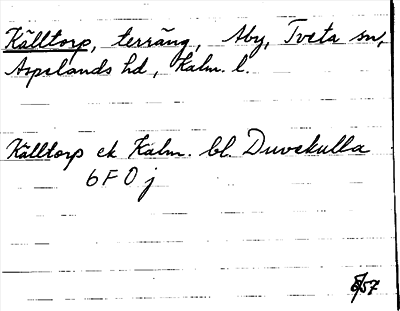 Källtorp, terräng, Åby, Tveta sn,
Aspelands hd, Kalm. l.
Källtorp ek Kalm. bl. Duvekulla
6F0j
57